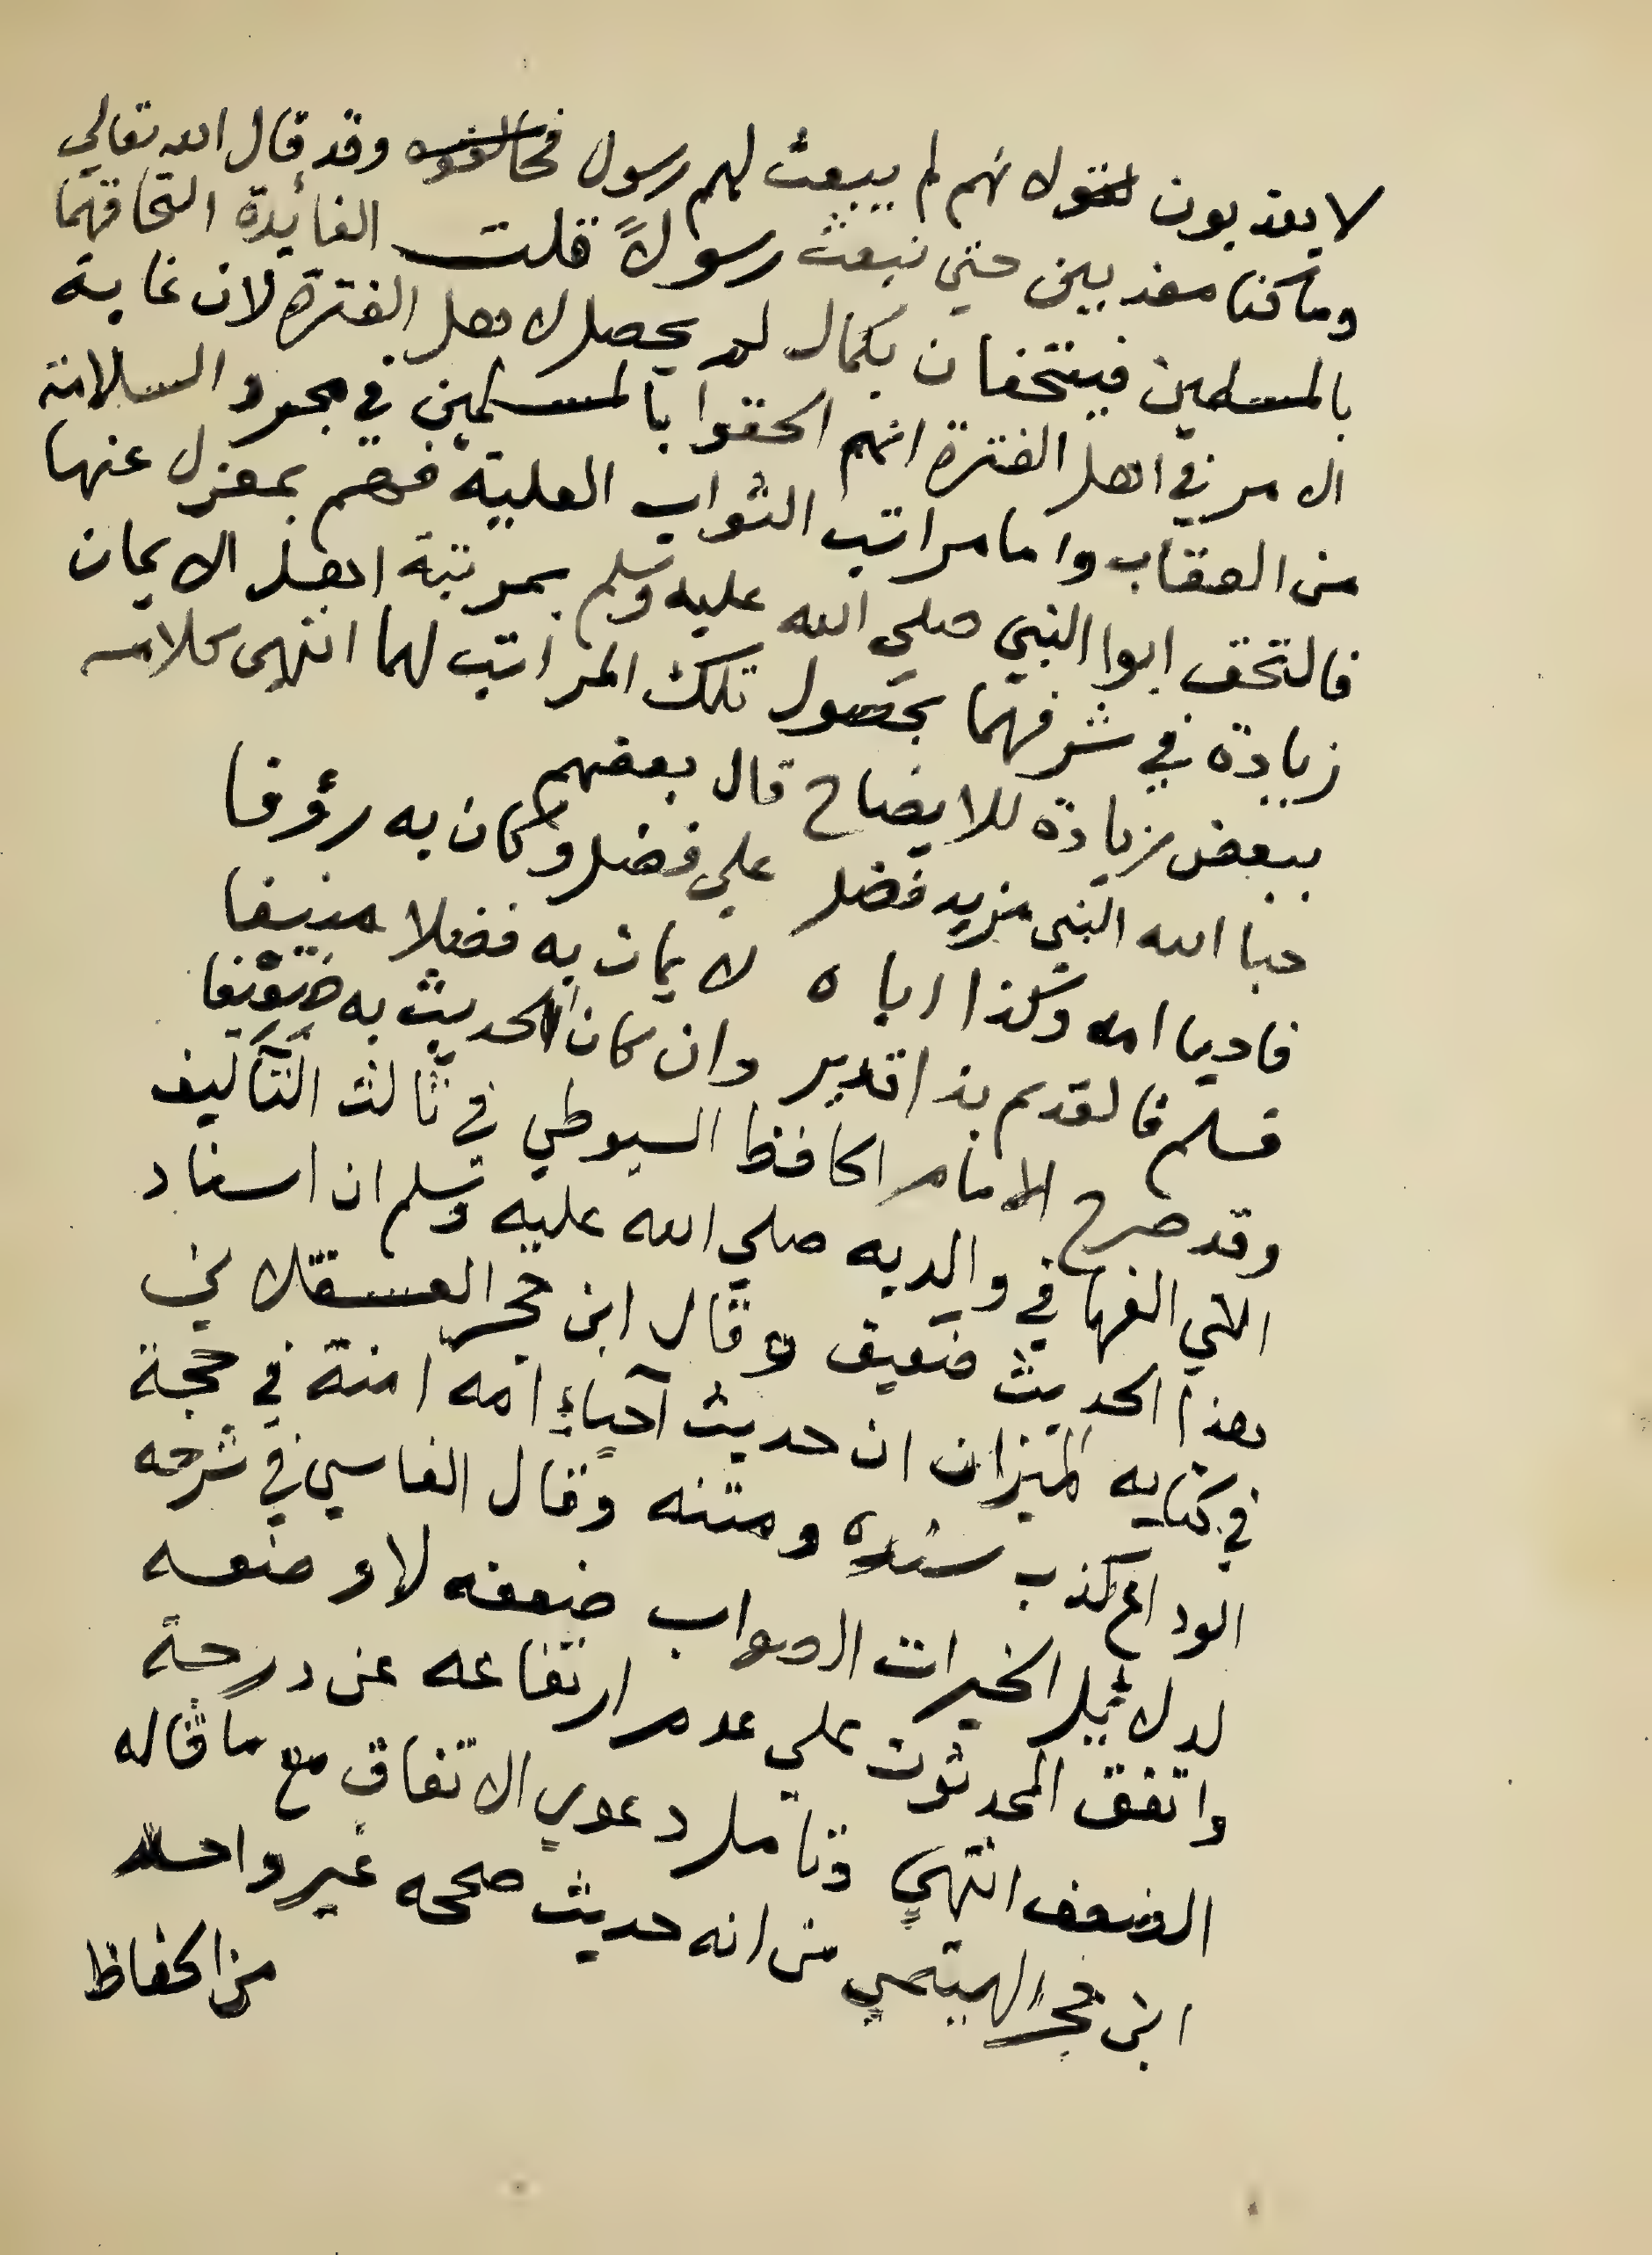 لا يعذبون لانهم لم يبعث لهم رسول فخالفوه وقد قال الله تعالي
وما كنا معذبين حتي نبعث رسولاً قلت الفائدة التحاقهما
بالمسلمين فيتحفان بكمال لم يحصل لاهل الفترة لان غاية
الامر في اهل الفترة انهم الحقوا بالمسلمين في مجرد السلامة
من العقاب واما مراتب الثواب العلية فهم بمعزل عنها
فالتحق ابوا النبي صلي الله عليه وسلم بمرتبة اهل الايمان
زيادة في شرفهما بحصول تلك المراتب لهما انتهى كلامه
ببعض زيادة للايضاح قال بعضهم
حبا الله النبي مزيد فضل علي فضل وكان به رؤفا
فاحيا امه وكذا اباه لايمان به فضلا منيفا
فسلم فالقديم بذا قدير وان كان الحديث به ضعيفا
وقد صرح الامام الحافظ السيوطي في ثالث التآليف
التي الفها في والديه صلي الله عليه وسلم ان اسناد
هذا الحديث ضعيف وقال ابن حجر العسقلاني
في كتابه الميزان ان حديث آحياء امه امنة في حجة
الوداع كذب سنده ومتنه وقال الفاسي في شرحه
لدلائيل الخيرات الصواب ضعفه لا وضعه
واتفق المحدثون علي عدم ارتفاعه عن درجة
الضعف انتهي وتامل دعوي الاتفاق مع ما قاله
ابن حجر الهيتمي من انه حديث صححه غير واحد
من الحفاظ